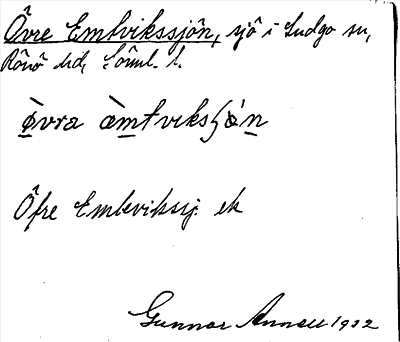 Övre Emtvikssjön, sjö i Ludgo sn,
Rönö hd, Söml. l.
òvra àmtviksʃǿn
Öfre Embevikssj. ek
Gunnar 1932